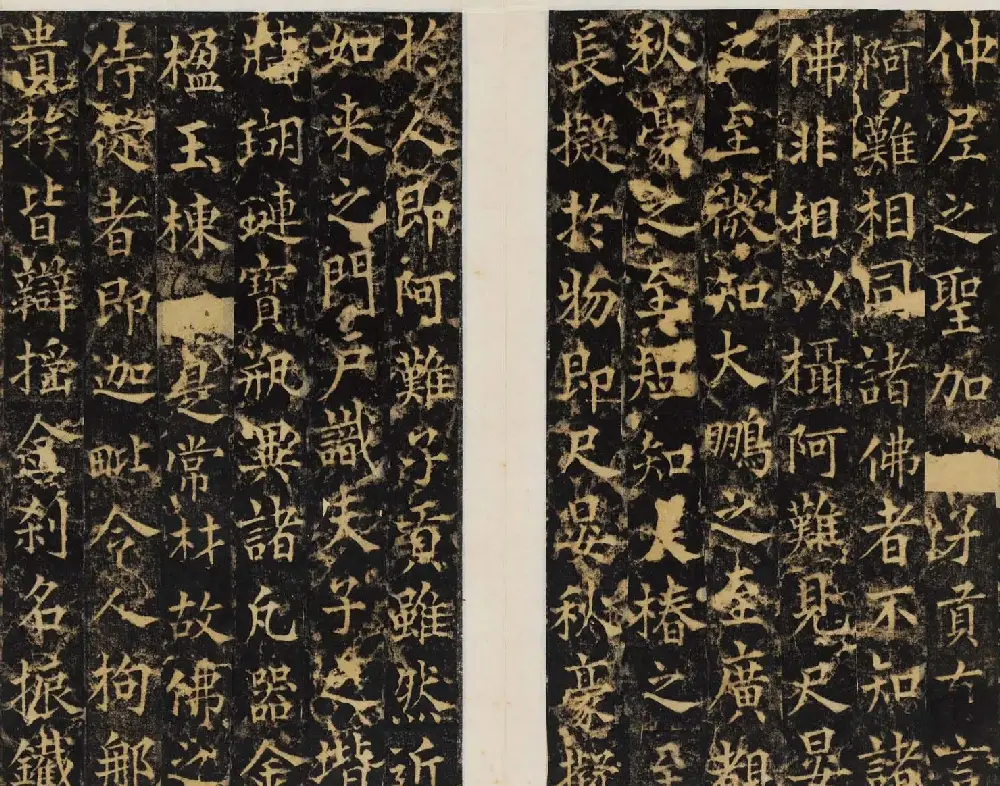 仲尼之聖加子貢亡言
阿難相同諸佛者不知諸
佛非相以攝阿難見尺晏
之至微知大鵬之至廣覩
秋豪之至短知大椿之至
長擬於物即尺晏秋豪擬
於人即阿難子貢雖然近
如来之門户識夫子之堦
墻瑚璉寶瓶異諸凡器金
楹玉棟是常材故佛之
侍從者即迦毗令人拘郍
貴族皆辯揺金剎名振鐵